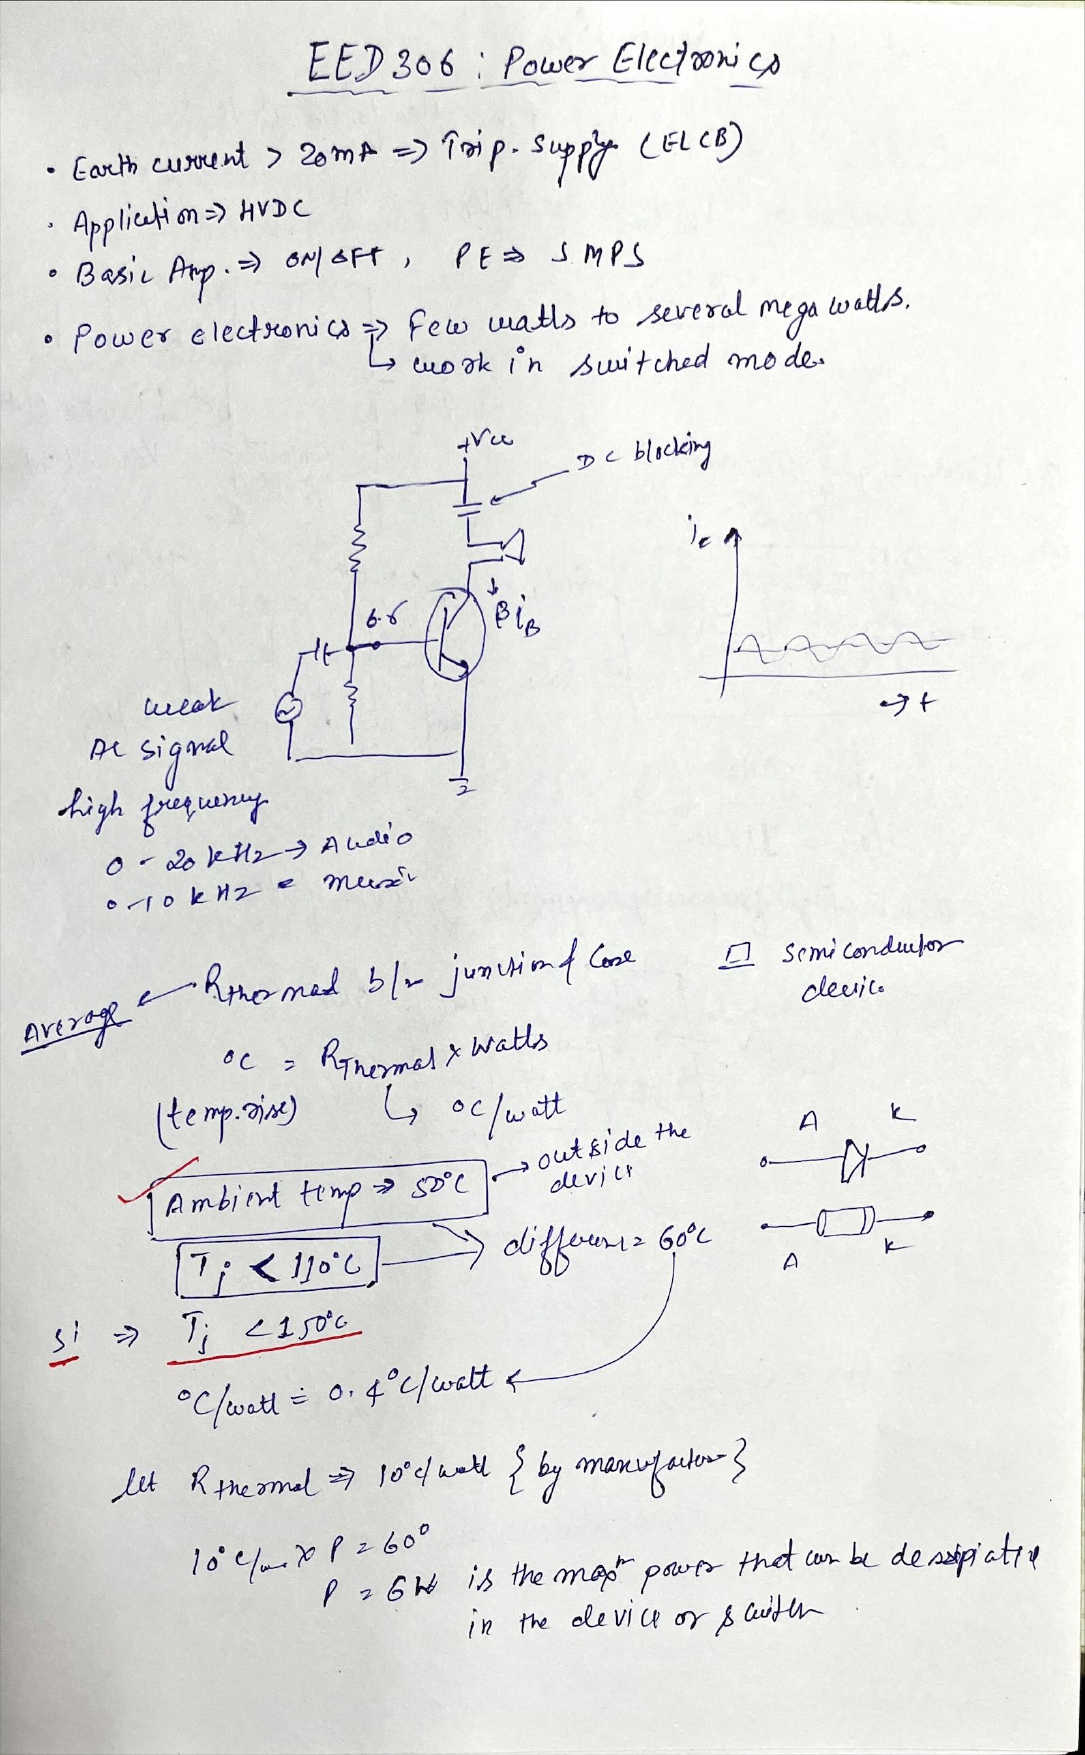 EED306 : Power Electronics
• Earth current > 20mA => Trip. Supply (ELCB)
• Application => HVDC
• Basic Amp. => ON/OFF, PE => SMPS
• Power electronics => Few watts to several mega watts.
↳ work in switched mode.
+Vcc
DC blocking
ic
βiB
weak
AC signal
high frequency
→ t
0 - 20 kHz → Audio
0-10 kHz = music
Average ← Rthermal b/w junction & Case
semiconductor
device
°C = RThermal x Watts
(temp. rise) ↳ °C/watt
A K
Ambient temp => 50°C → outside the
device
Tj < 110°C → difference = 60°C
A K
Si => Tj < 150°C
°C/watt = 0.4°C/watt
let Rthermal => 10°C/watt { by manufacturer }
10°C/w x P = 60°
P = 6W is the maxm power that can be dessipiated
in the device or switch